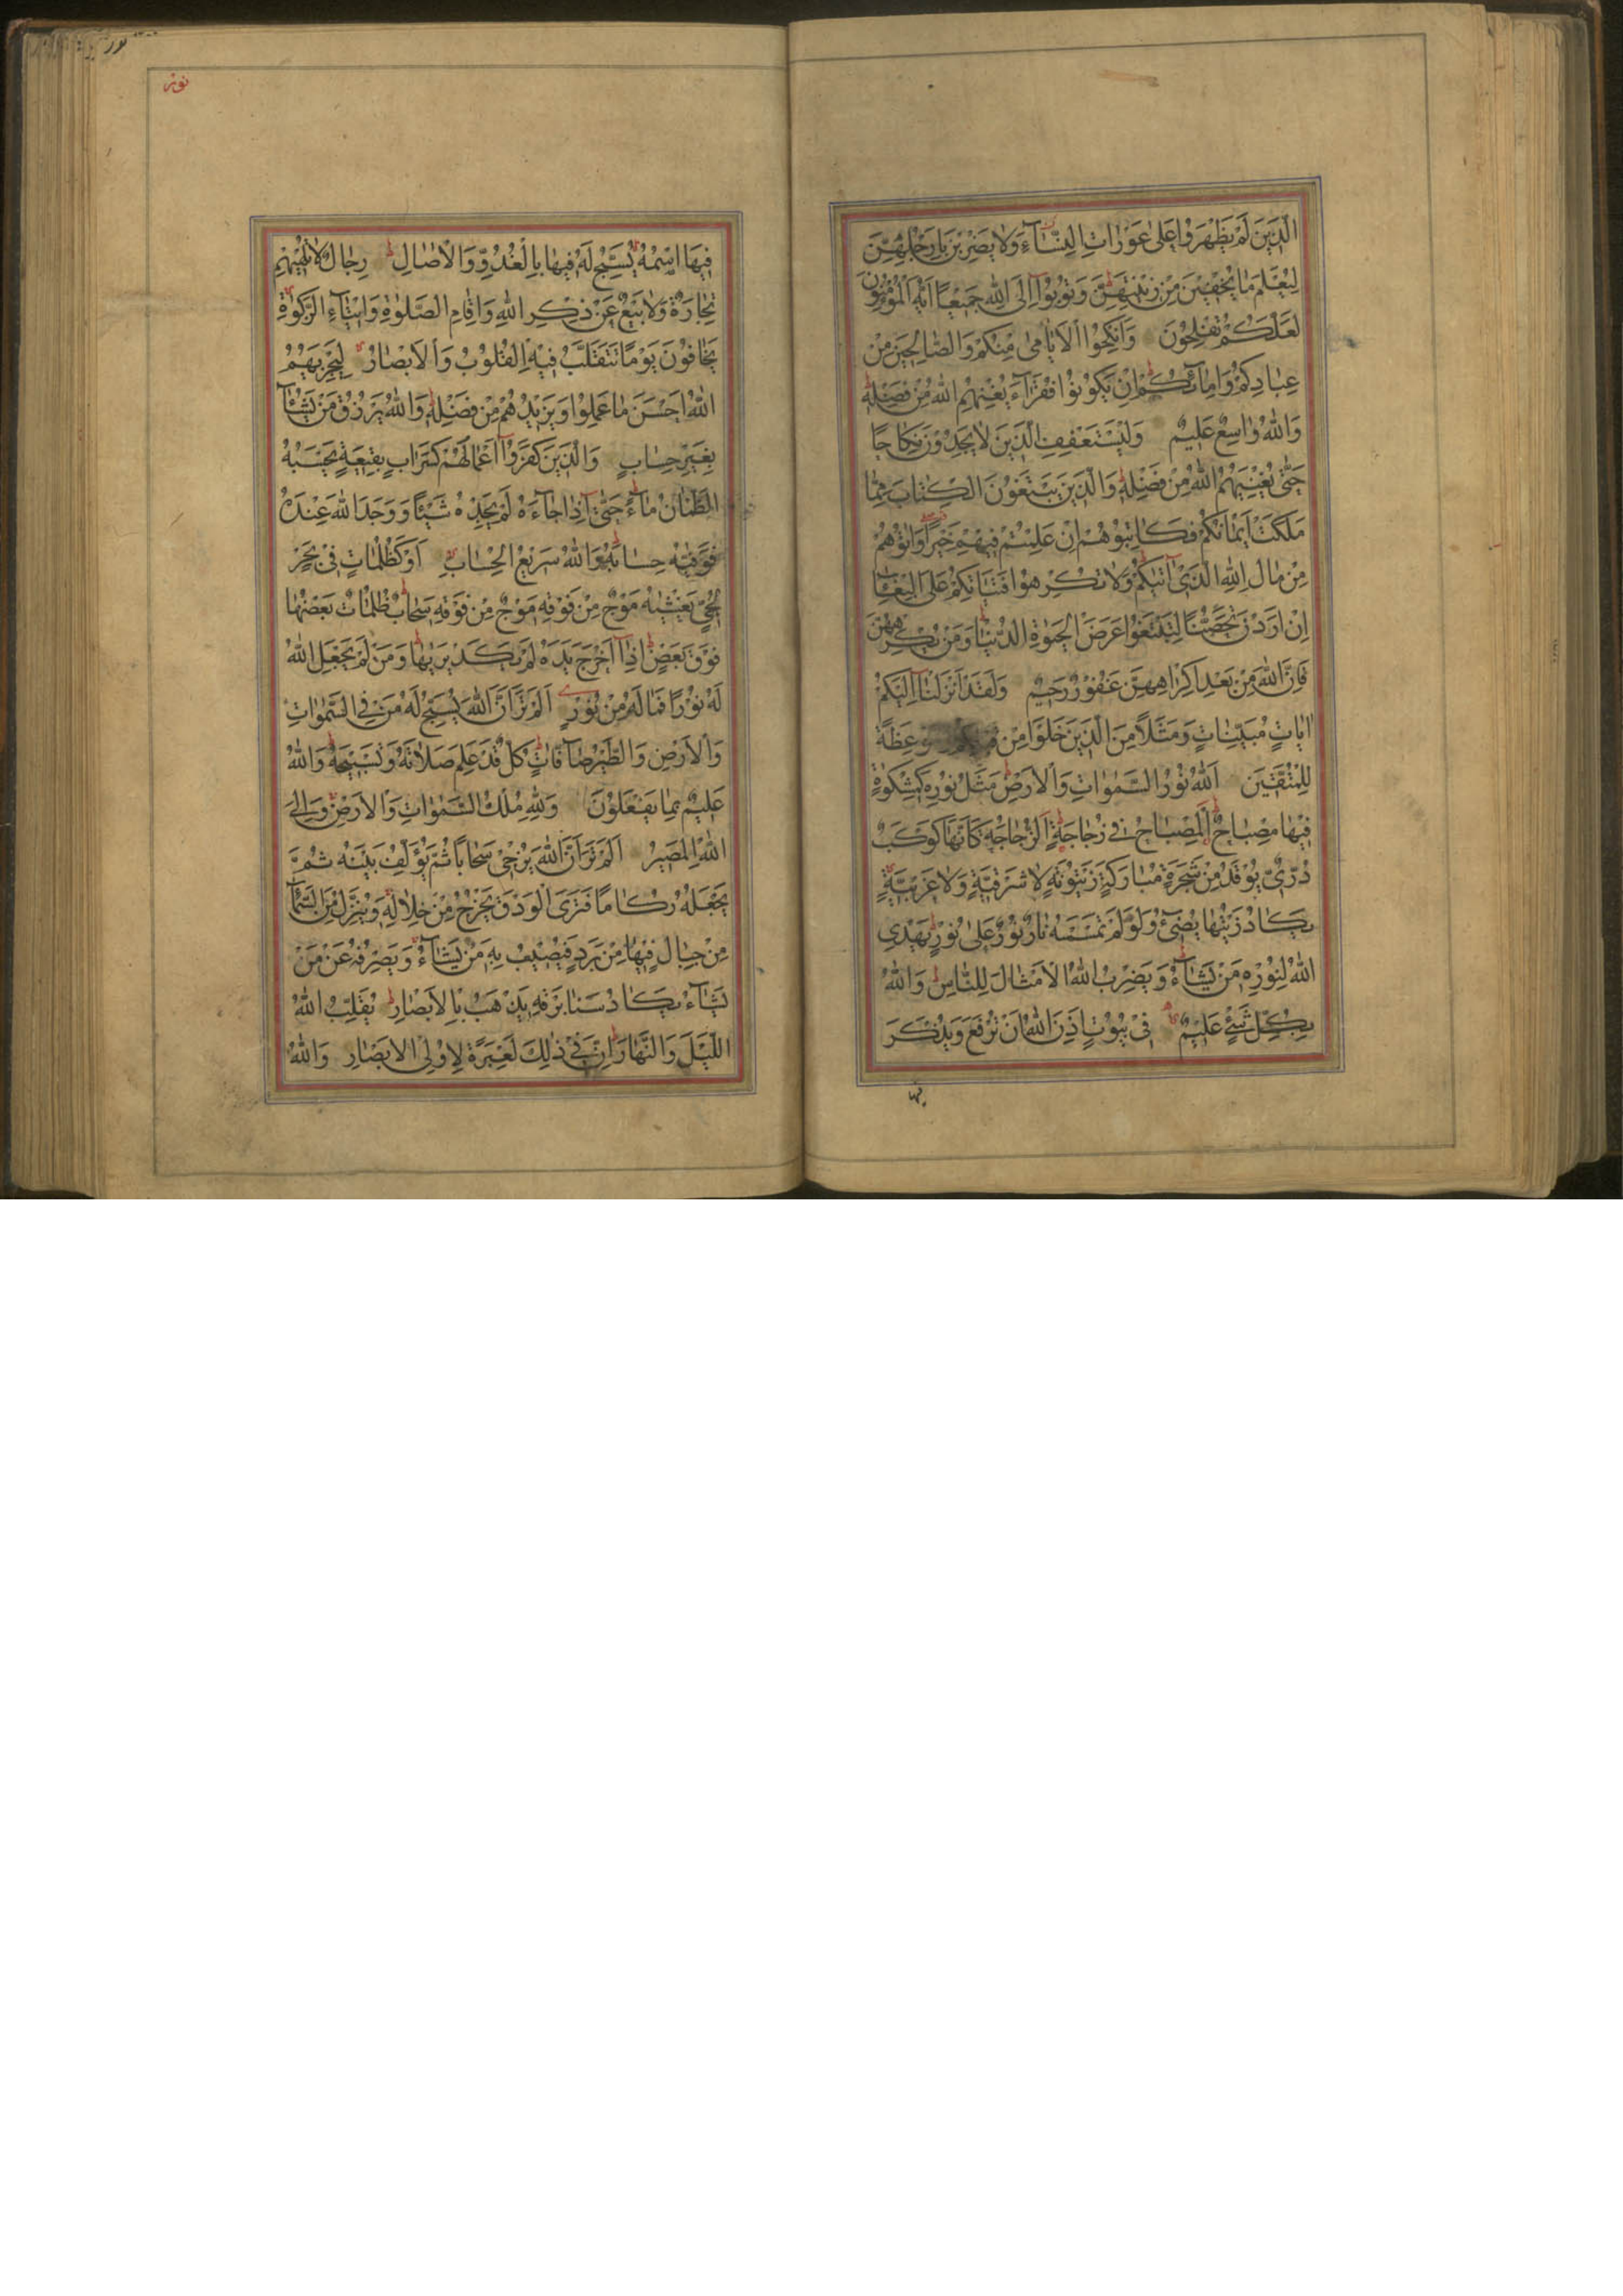 الَّذِينَ لَمْ يَظْهَرُوا عَلىٰ عَوْرَاتِ النِّسَآءِ وَلَا يَضْرِبْنَ بِاَرْجُلِهِنَّ
لِيُعْلَمَ مَا يُخْفِينَ مِنْ زِينَتِهِنَّ وَتُوبُوا اِلَى اللهِ جَمِيعًا اَيُّهَ الْمُؤْمِنُونَ
لَعَلَّكُمْ تُفْلِحُونَ وَاَنْكِحُوا الْاَيَامٰى مِنْكُمْ وَالصَّالِحِينَ مِنْ
عِبَادِكُمْ وَاِمَآئِكُمْ اِنْ يَكُونُوا فُقَرَآءَ يُغْنِهِمُ اللهُ مِنْ فَضْلِهٖ
وَاللهُ وَاسِعٌ عَلِيمٌ وَلْيَسْتَعْفِفِ الَّذِينَ لَا يَجِدُونَ نِكَاحًا
حَتّٰى يُغْنِيَهُمُ اللهُ مِنْ فَضْلِهٖ وَالَّذِينَ يَبْتَغُونَ الْكِتَابَ مِمَّا
مَلَكَتْ اَيْمَانُكُمْ فَكَاتِبُوهُمْ اِنْ عَلِمْتُمْ فِيهِمْ خَيْرًا وَاٰتُوهُمْ
مِنْ مَالِ اللهِ الَّذِى اٰتٰيكُمْ وَلَا تُكْرِهُوا فَتَيَاتِكُمْ عَلَى الْبِغَآءِ
اِنْ اَرَدْنَ تَحَصُّنًا لِتَبْتَغُوا عَرَضَ الْحَيٰوةِ الدُّنْيَا وَمَنْ يُكْرِهْهُنَّ
فَاِنَّ اللهَ مِنْ بَعْدِ اِكْرَاهِهِنَّ غَفُورٌ رَحِيمٌ وَلَقَدْ اَنْزَلْنَا اِلَيْكُمْ
اٰيَاتٍ مُبَيِّنَاتٍ وَمَثَلًا مِنَ الَّذِينَ خَلَوْا مِنْ قَبْلِكُمْ وَمَوْعِظَةً
لِلْمُتَّقِينَ اَللهُ نُورُ السَّمٰوَاتِ وَالْاَرْضِ مَثَلُ نُورِهٖ كَمِشْكٰوةٍ
فِيهَا مِصْبَاحٌ اَلْمِصْبَاحُ فِى زُجَاجَةٍ اَلزُّجَاجَةُ كَاَنَّهَا كَوْكَبٌ
دُرِّىٌّ يُوقَدُ مِنْ شَجَرَةٍ مُبَارَكَةٍ زَيْتُونَةٍ لَا شَرْقِيَّةٍ وَلَا غَرْبِيَّةٍ
يَكَادُ زَيْتُهَا يُضِىءُ وَلَوْ لَمْ تَمْسَسْهُ نَارٌ نُورٌ عَلٰى نُورٍ يَهْدِى
اللهُ لِنُورِهٖ مَنْ يَشَآءُ وَيَضْرِبُ اللهُ الْاَمْثَالَ لِلنَّاسِ وَاللهُ
بِكُلِّ شَىْءٍ عَلِيمٌ فِى بُيُوتٍ اَذِنَ اللهُ اَنْ تُرْفَعَ وَيُذْكَرَ
فيها
نور
نور
فِيهَا اسْمُهُ يُسَبِّحُ لَهُ فِيهَا بِالْغُدُوِّ وَالْاٰصَالِ رِجَالٌ لَا تُلْهِيهِمْ
تِجَارَةٌ وَلَا بَيْعٌ عَنْ ذِكْرِ اللهِ وَاِقَامِ الصَّلٰوةِ وَاِيتَآءِ الزَّكٰوةِ
يَخَافُونَ يَوْمًا تَتَقَلَّبُ فِيهِ الْقُلُوبُ وَالْاَبْصَارُ لِيَجْزِيَهُمُ
اللهُ اَحْسَنَ مَا عَمِلُوا وَيَزِيدَهُمْ مِنْ فَضْلِهٖ وَاللهُ يَرْزُقُ مَنْ يَشَآءُ
بِغَيْرِ حِسَابٍ وَالَّذِينَ كَفَرُوا اَعْمَالُهُمْ كَسَرَابٍ بِقِيعَةٍ يَحْسَبُهُ
الظَّمْاٰنُ مَآءً حَتّٰى اِذَا جَآءَهُ لَمْ يَجِدْهُ شَيْئًا وَوَجَدَ اللهَ عِنْدَهُ
فَوَفّٰيهُ حِسَابَهُ وَاللهُ سَرِيعُ الْحِسَابِ اَوْ كَظُلُمَاتٍ فِى بَحْرٍ
لُجِّىٍّ يَغْشٰيهُ مَوْجٌ مِنْ فَوْقِهٖ مَوْجٌ مِنْ فَوْقِهٖ سَحَابٌ ظُلُمَاتٌ بَعْضُهَا
فَوْقَ بَعْضٍ اِذَا اَخْرَجَ يَدَهُ لَمْ يَكَدْ يَرٰيهَا وَمَنْ لَمْ يَجْعَلِ اللهُ
لَهُ نُورًا فَمَا لَهُ مِنْ نُورٍ اَلَمْ تَرَ اَنَّ اللهَ يُسَبِّحُ لَهُ مَنْ فِى السَّمٰوَاتِ
وَالْاَرْضِ وَالطَّيْرُ صَآفَّاتٍ كُلٌّ قَدْ عَلِمَ صَلَاتَهُ وَتَسْبِيحَهُ وَاللهُ
عَلِيمٌ بِمَا يَفْعَلُونَ وَلِلّٰهِ مُلْكُ السَّمٰوَاتِ وَالْاَرْضِ وَاِلَى
اللهِ الْمَصِيرُ اَلَمْ تَرَ اَنَّ اللهَ يُزْجِى سَحَابًا ثُمَّ يُؤَلِّفُ بَيْنَهُ ثُمَّ
يَجْعَلُهُ رُكَامًا فَتَرَى الْوَدْقَ يَخْرُجُ مِنْ خِلَالِهٖ وَيُنَزِّلُ مِنَ السَّمَآءِ
مِنْ جِبَالٍ فِيهَا مِنْ بَرَدٍ فَيُصِيبُ بِهٖ مَنْ يَشَآءُ وَيَصْرِفُهُ عَنْ مَنْ
يَشَآءُ يَكَادُ سَنَا بَرْقِهٖ يَذْهَبُ بِالْاَبْصَارِ يُقَلِّبُ اللهُ
اللَّيْلَ وَالنَّهَارَ اِنَّ فِى ذٰلِكَ لَعِبْرَةً لِاُولِى الْاَبْصَارِ وَاللهُ